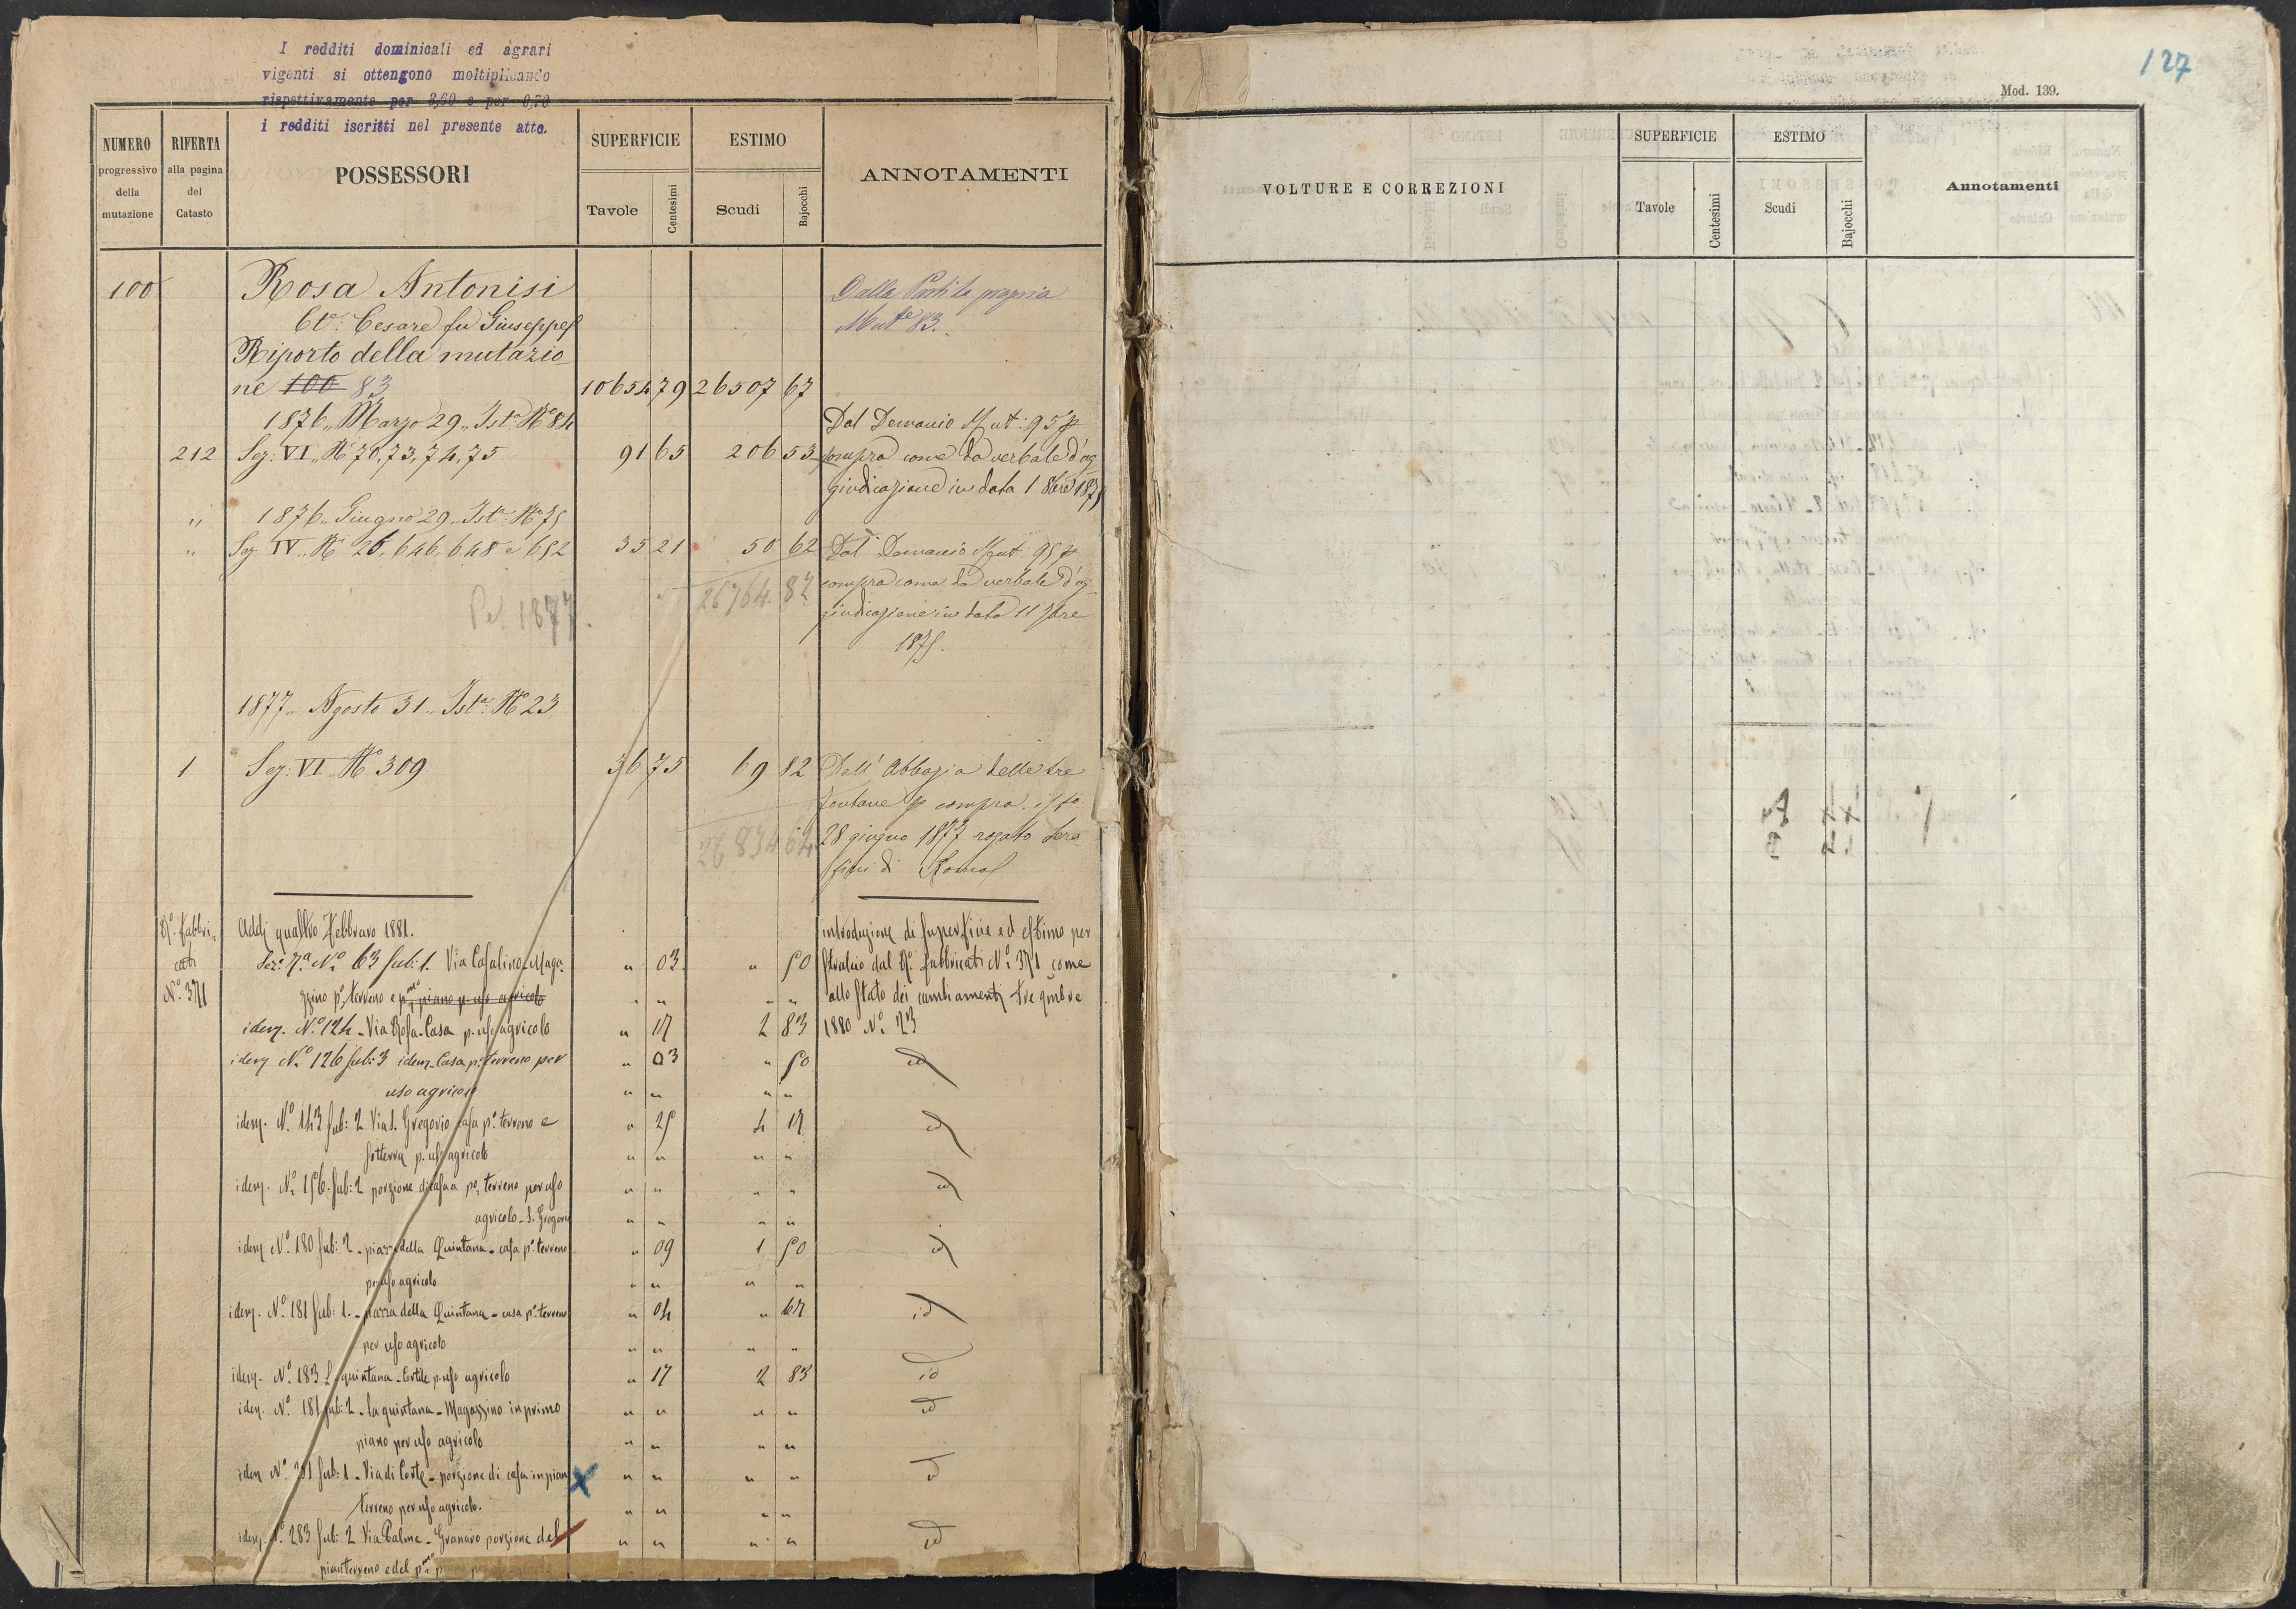 I redditi dominicali ed agrari
vigenti si ottengono moltiplicando
rispettivamente per 3,60 e per 0,70
i redditi iscritti nel presente atto.
NUMERO progressivo della mutazione
RIFERTA alla pagina del Catasto
POSSESSORI
SUPERFICIE
Tavole Centesimi
ESTIMO
Scudi Bajocchi
ANNOTAMENTI
100 Rosa Antonisi Dalla Partita propria
Cte: Cesare fu Giuseppe Mute 83.
Riporto della mutazio-
ne 100 83 10654 79 26507 67
1876,, Marzo 29,, Ista No 84 Dal Demanio Mut: 95 p
212 Sez: VI,, Ni 70, 73, 74, 75 91 65 206 53 compra come da verbale d'ag-
giudicazione in data 1 8bre 1875
" 1876,, Giugno 29,, Ista: No 75
" Sez. IV,, Ni 26, 646, 648 e 652 35 21 50 62 Dal Demanio Mut. 95 p
26764. 82 compra come da verbale d'ag-
Pel 1877. giudicazione in data 11 7bre
1875.
1877,, Agosto 31,, Ista: No 23
1 Sez: VI,, No 309 36 75 69 82 Dall' Abbazia delle tre
fontane p compra
26834 64 28 giugno 1877 rogato Sera
fini di Roma
Ro. Fabbri- Addi quattro Febbraro 1881. introduzione di superficie ed estimo per
cati No. 63 sub: 1. Via Casalino Maga- " 03 " 50 stralcio dal Ro. fabbricati No. 371 come
No. 371 zzino po. terreno e pmo piano p. uso agricolo " " " " allo stato dei cambiamenti tre 9mbre
idem. No. 124 - Via Rosa - Casa p. uso agricolo " 17 2 83 1880 No. 23
idem No. 126 sub: 3 idem - Casa p. terreno per " 03 " 50 id
uso agricolo " " " "
idem. No. 143 sub: 2 Via S. Gregorio casa po. terreno e " 25 4 17 id
sotterra p. uso agricolo " " " "
idem. No. 156. sub: 2 porzione di casa a po. terreno per uso " " " " id
agricolo - S. Gregorio " " " "
idem No. 180 sub: 2 - piazza della Quintana - casa po. terreno " 09 1 50 id
per uso agricolo " " " "
idem. No. 181 sub: 1. - piazza della Quintana - casa po. terreno " 04 " 67 id
per uso agricolo " " " "
idem. No. 183 La quintana - Cortile p. uso agricolo " 17 2 83 id
idem. No. 181 sub: 2 - la quintana - Magazzino in primo " " " " id
piano per uso agricolo " " " "
idem No. 201 sub: 1 - Via di Corte - porzione di casa in pian " " " " id
terreno per uso agricolo. " " " "
idem. No. 283 sub: 2 Via Palme - Granaro porzione del " " " " id
pianterreno e del pmo
127
Mod. 139.
VOLTURE E CORREZIONI
SUPERFICIE
Tavole Centesimi
ESTIMO
Scudi Bajocchi
Annotamenti